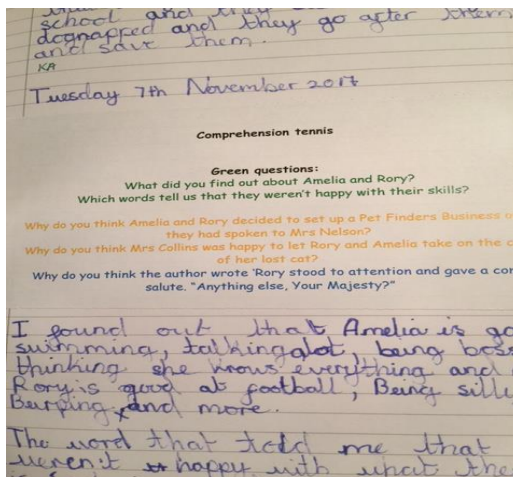 school and they
dognapped and they go after them
and save them.
KA
Tuesday 7th November 2017
Comprehension tennis
Green questions:
What did you find out about Amelia and Rory?
Which words tell us that they weren't happy with their skills?
Why do you think Amelia and Rory decided to set up a Pet Finders Business
they had spoken to Mrs Nelson?
Why do you think Mrs Collins was happy to let Rory and Amelia take on the
of her lost cat?
Why do you think the author wrote 'Rory stood to attention and gave a
salute. "Anything else, Your Majesty?"
I found out that Amelia is
swimming, talking alot, being
thinking she knows everything and
Rory is good at football, Being
Burping and more..
The word that told me that
weren't happy with what